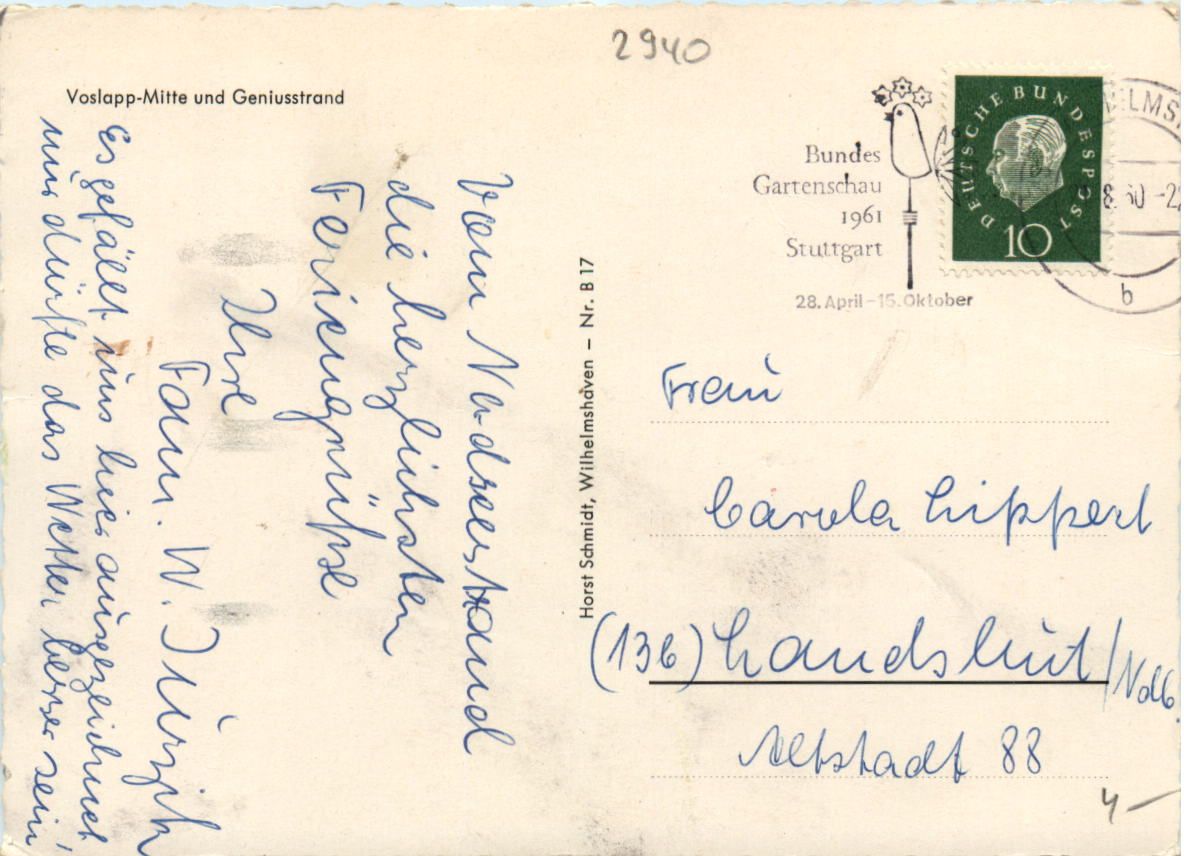 2940
Voslapp-Mitte und Geniusstrand
Bundes
Gartenschau
1961
Stuttgart
28. April - 15. Oktober
DEUTSCHE BUNDESPOST
10
8.60 -2
b
Vom Nordseestrand
die herzlichsten
Feriengrüße
Ihre
Fam. W.
Es gefällt uns hier ausgezeichnet
nur dürfte das Wetter besser sein!
Horst Schmidt, Wilhelmshaven – Nr. B 17
Frau
Carola Lippert
(13b) Landshut/Ndb.
Altstadt 88
4 —